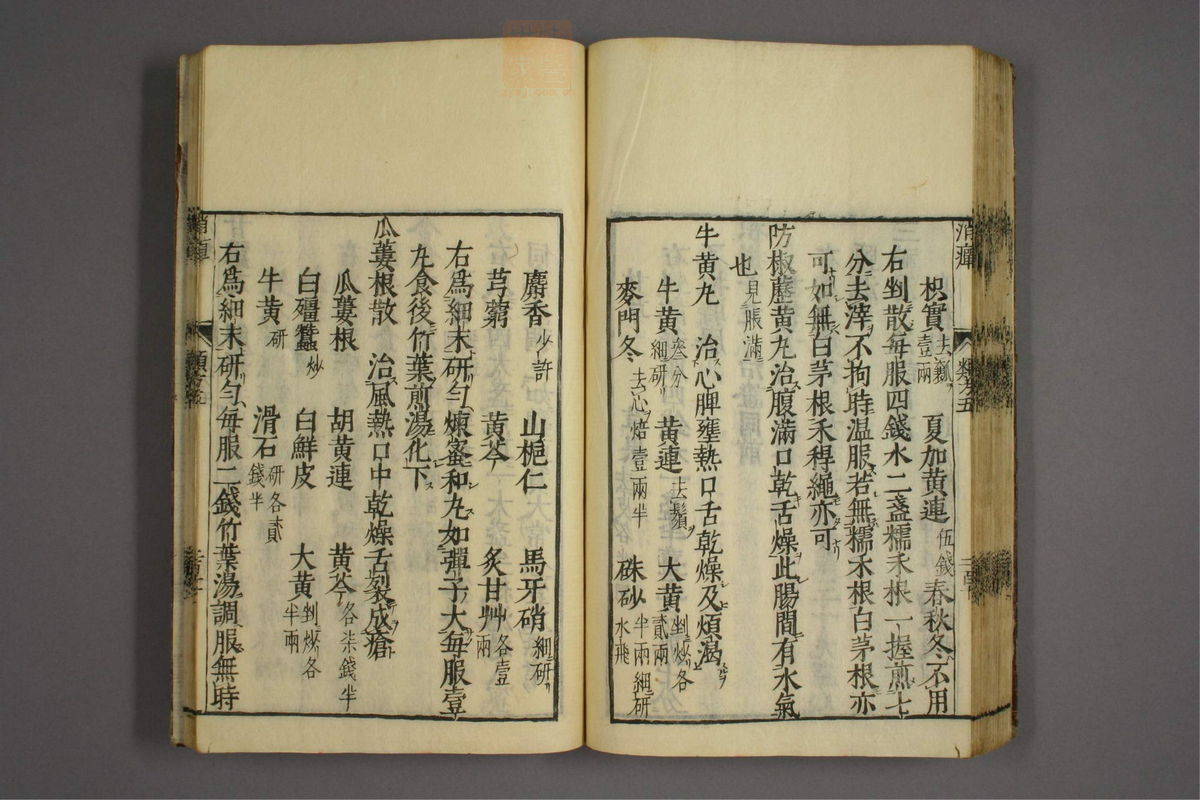 枳實去瓤壹兩　夏加黃連伍錢春秋冬不用
右剉散每服四錢水二盞糯禾根一握煎七
分去滓不拘時温服若無糯禾根白茅根亦
可如無白茅根禾稈繩亦可
防椒藶黃丸治腹滿口乾舌燥此腸間有水氣
也見脹滿
牛黃丸　治心脾壅熱口舌乾燥及煩渴
牛黃叁分細研　黃連去鬚　大黃剉炒各貳兩
麥門冬去心焙壹兩半　硃砂半兩細研水飛
麝香少許　山梔仁　馬牙硝細研
芎藭　黃芩　炙甘艸各壹兩
右爲細末研勻煉蜜和丸如彈子大每服壹
丸食後竹葉煎湯化下
瓜蔞根散　治風熱口中乾燥舌裂成瘡
瓜蔞根　胡黃連　黃芩各柒錢半
白殭蠶炒　白鮮皮　大黃剉炒各半兩
牛黃研　滑石研各貳錢半
右爲細末研勻每服二錢竹葉湯調服無時